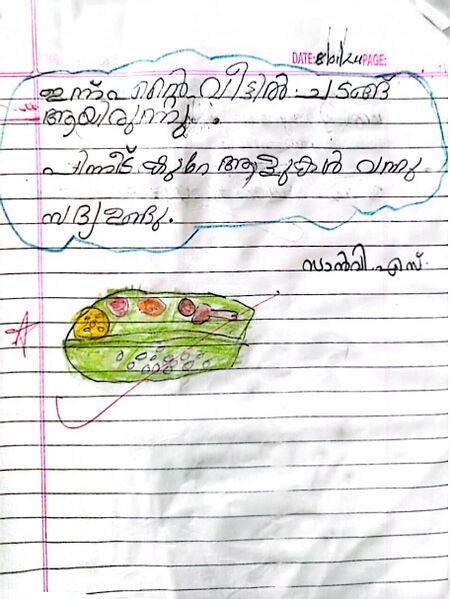 DATE: 8/01/24 PAGE:
ഇന്ന് എന്റെ വീട്ടിൽ ചടങ്ങ്
ആയിരുന്നു.
പിന്നീട് കുറേ ആളുകൾ വന്നു
സദ്യ ഉണ്ടു.
സാൻവി. എസ്.